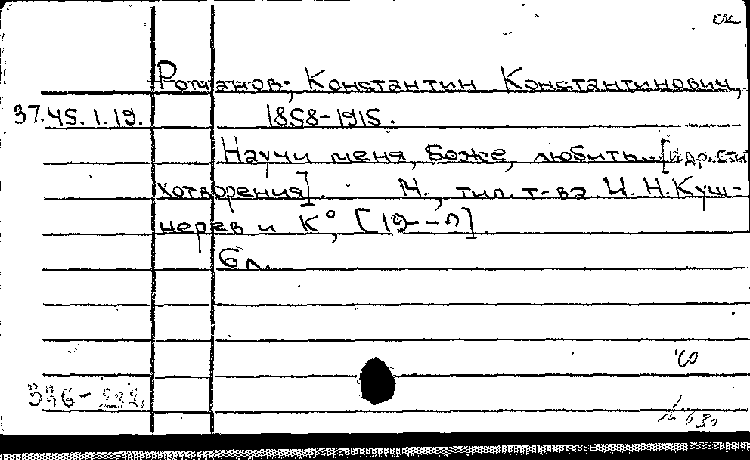 Романов, Константин Константинович,
37.45.1.19. 1858-1915.
Научи меня, Боже, любить...[и др. сти
хотворения]. М., тип. т-ва И. Н. Куш-
нерев и К°, [19--?].
6 л.
'60
536-